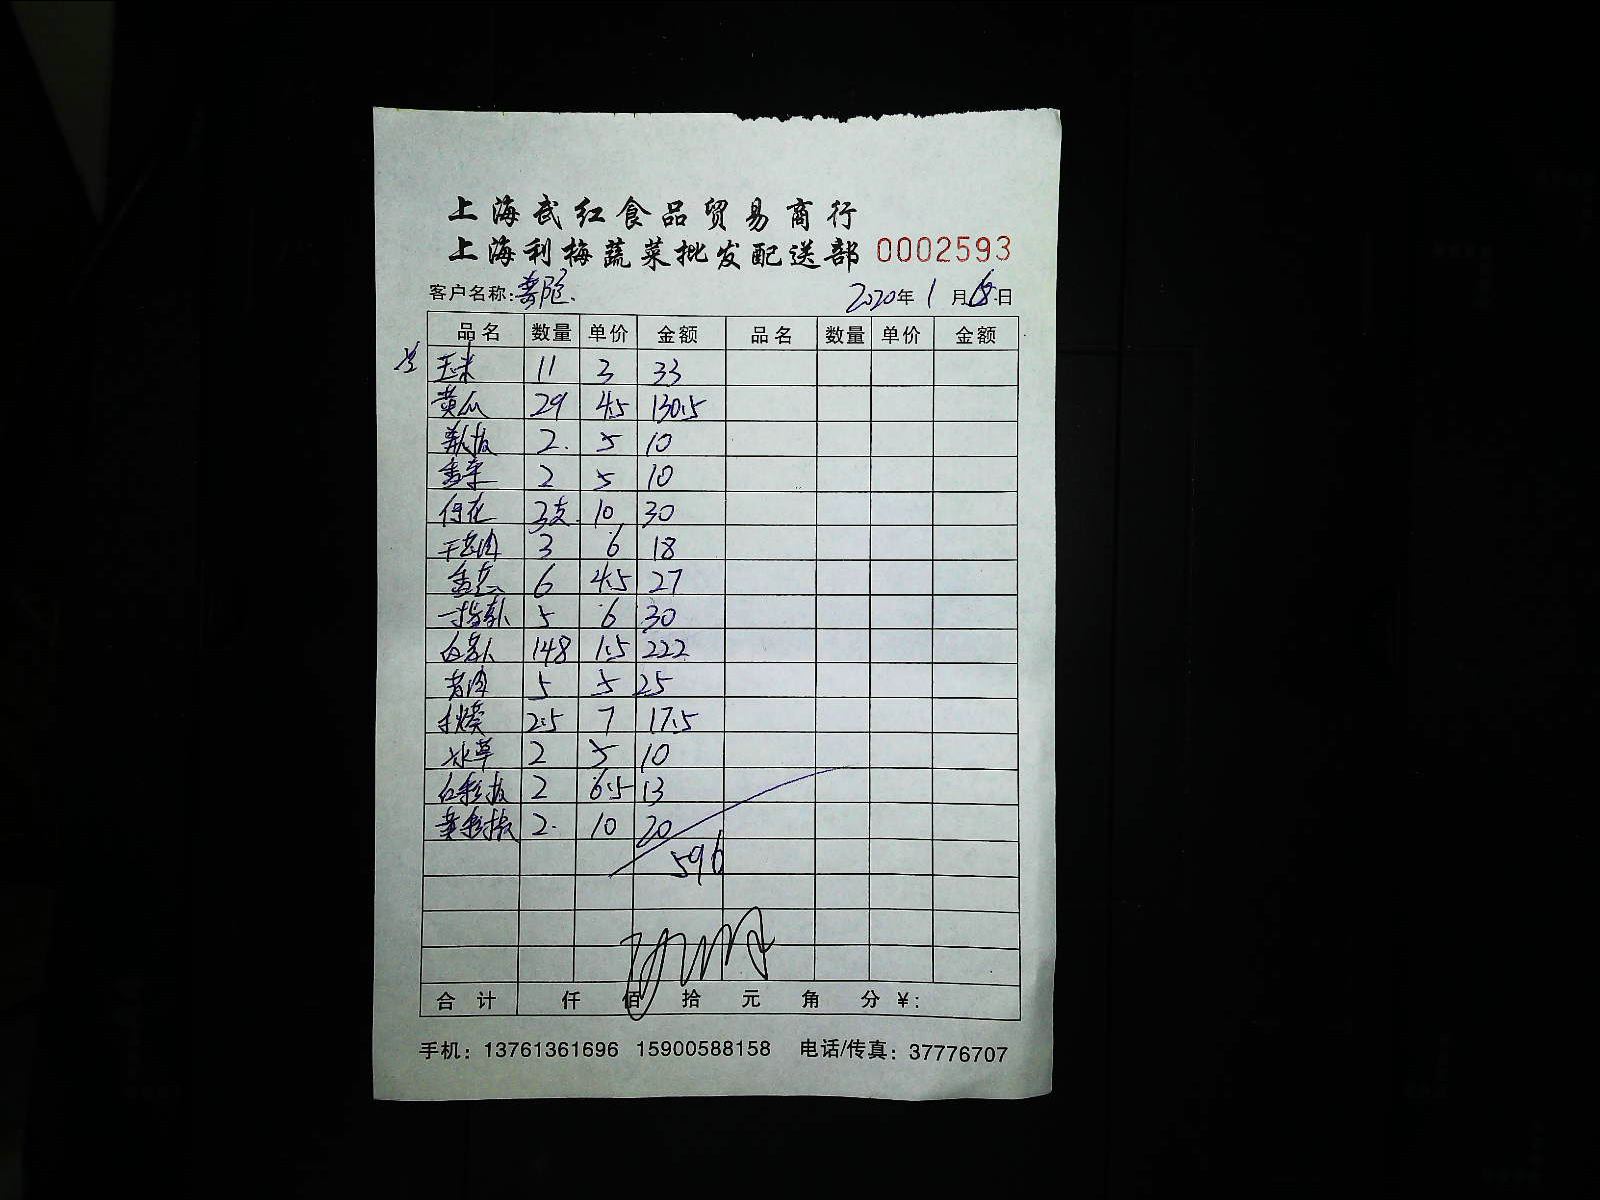 上海武红食品贸易商行
上海利梅蔬菜批发配送部 0002593
客户名称: 2020年1月18日
品名 数量 单价 金额 品名 数量 单价 金额
玉米 11 3 33
黄瓜 29 4.5 130.5
2. 5 10
2 5 10
3支 10 30
3 6 18
6 4.5 27
5 6 30
148 1.5 222
5 5 25
2.5 7 17.5
冰草 2 5 10
红彩椒 2 6.5 13
黄彩椒 2. 10 20
596
合计 仟 佰 拾 元 角 分 ¥:
手机: 13761361696 15900588158 电话/传真: 37776707